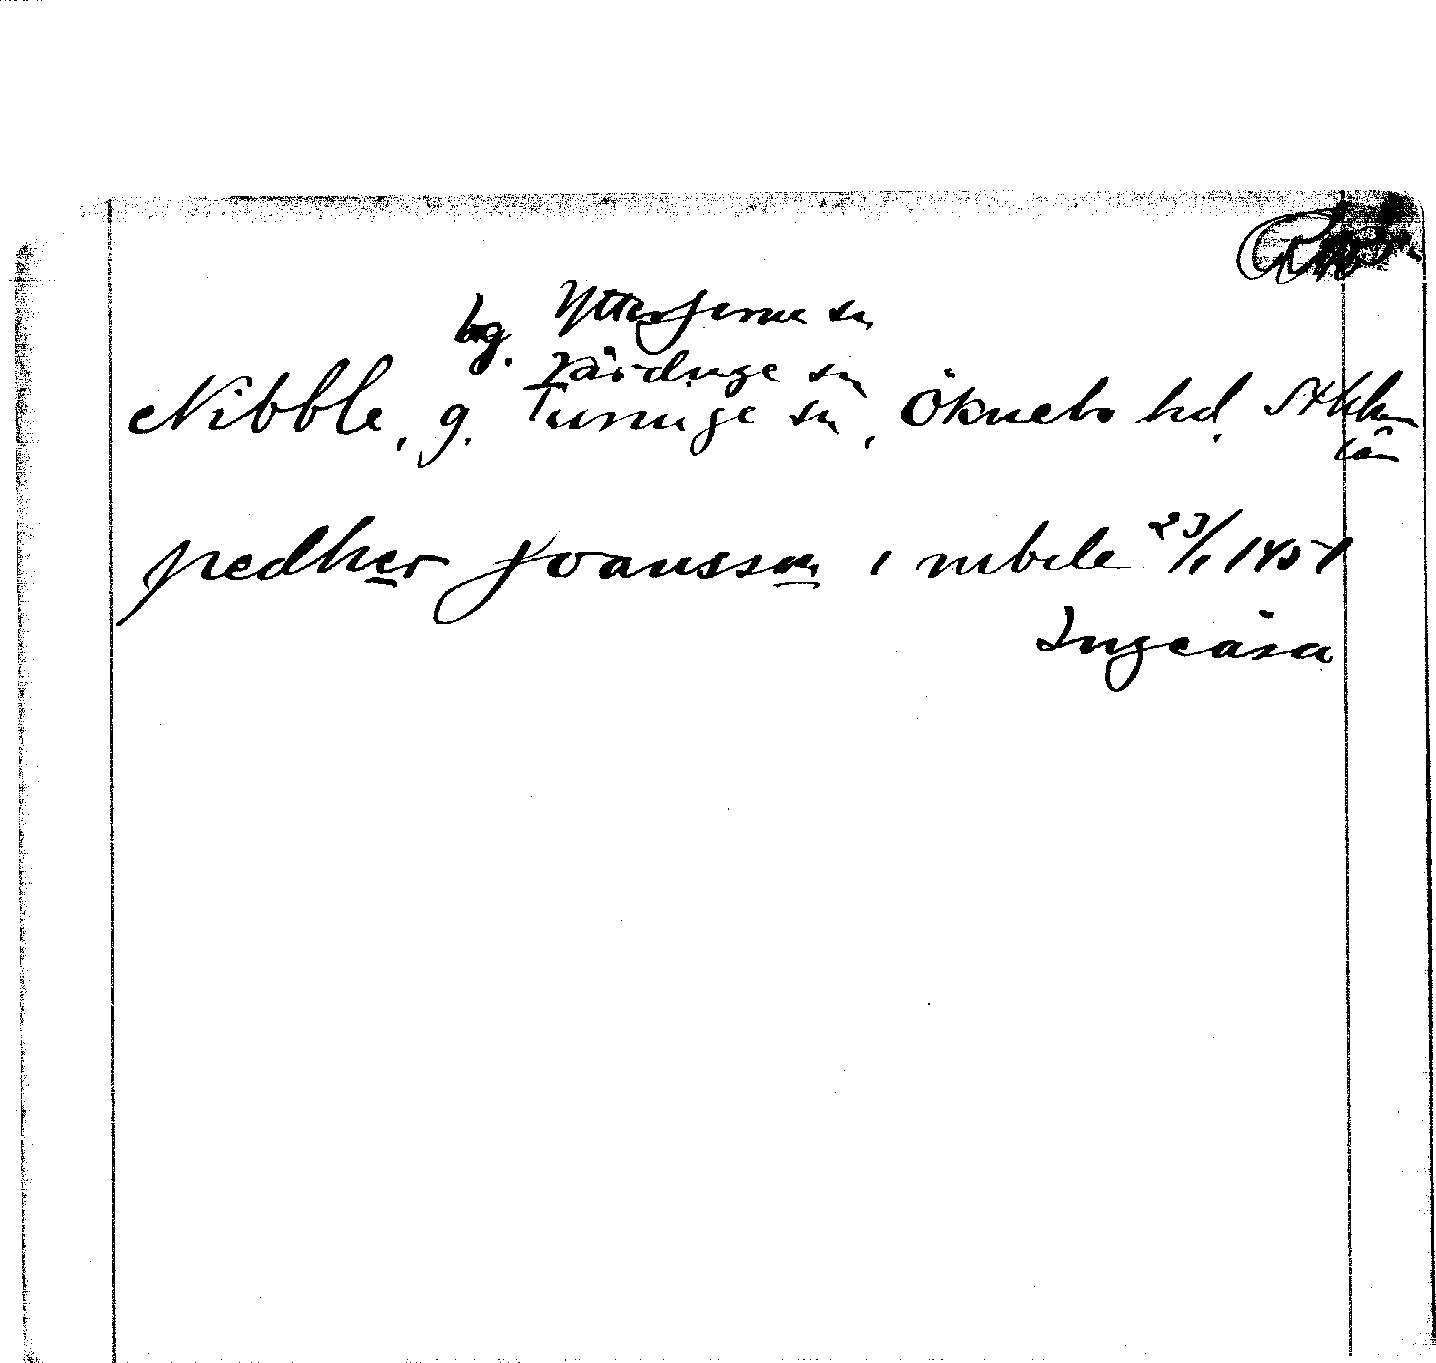 bg. Ytterjerna sn
Vårdinge sn
Nibble, g. Turinge sn, Öknebo hd, Sthlms
län
pedher Joansson i nibele 23/1 1451
Ingeåsa